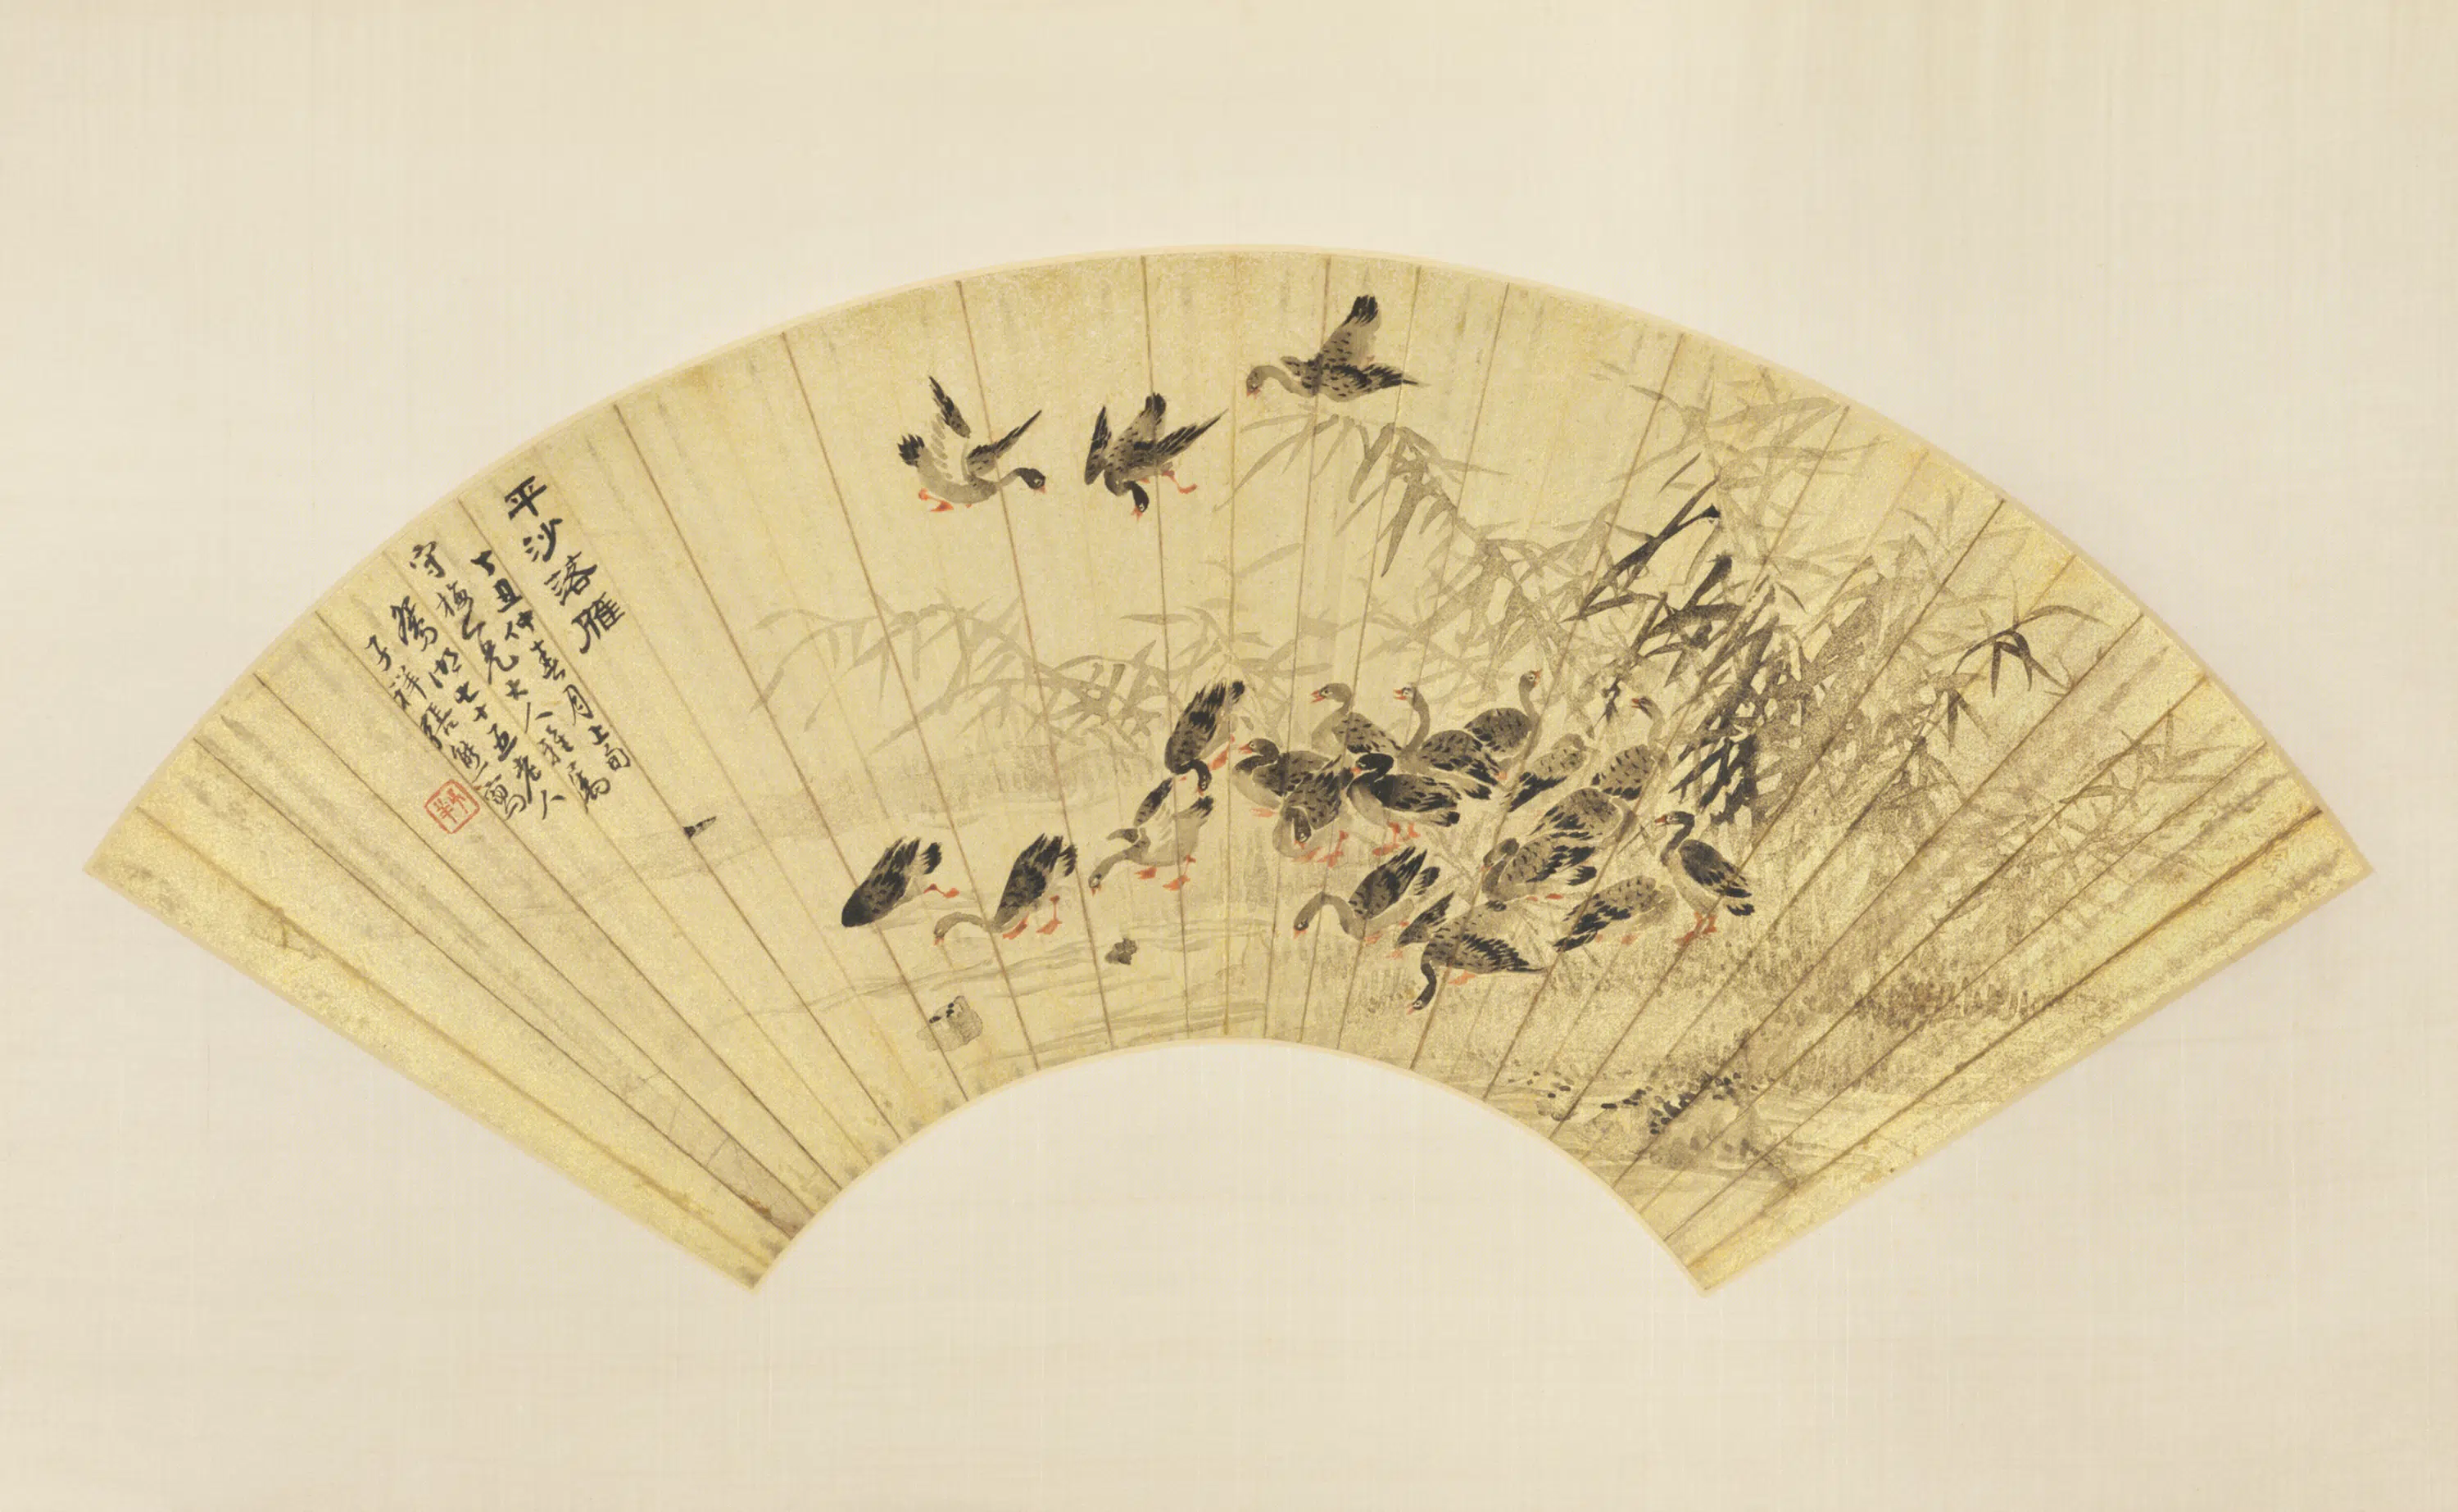 平沙落雁
丁丑仲春月上旬
守梅仁兄大人雅属
鴛湖七十五老人
子祥張熊寫